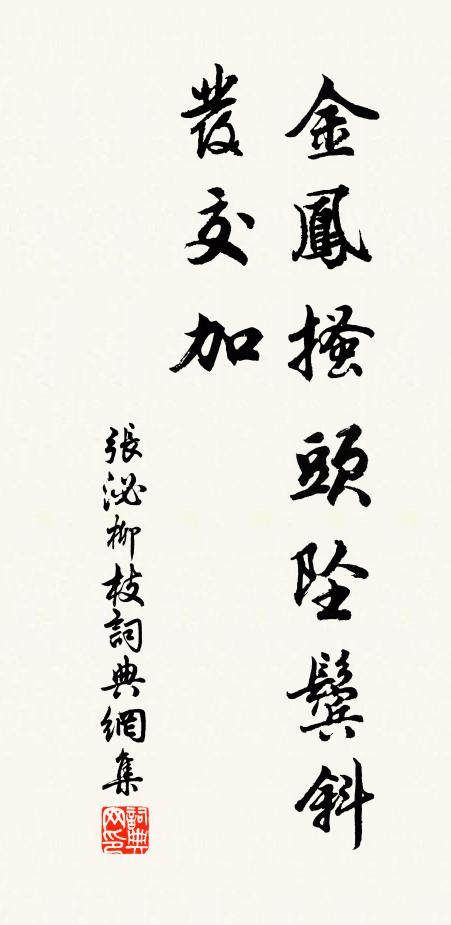 金鳳搔頭墜鬢斜
發交加
張泌柳枝詞典網集
詞典网印